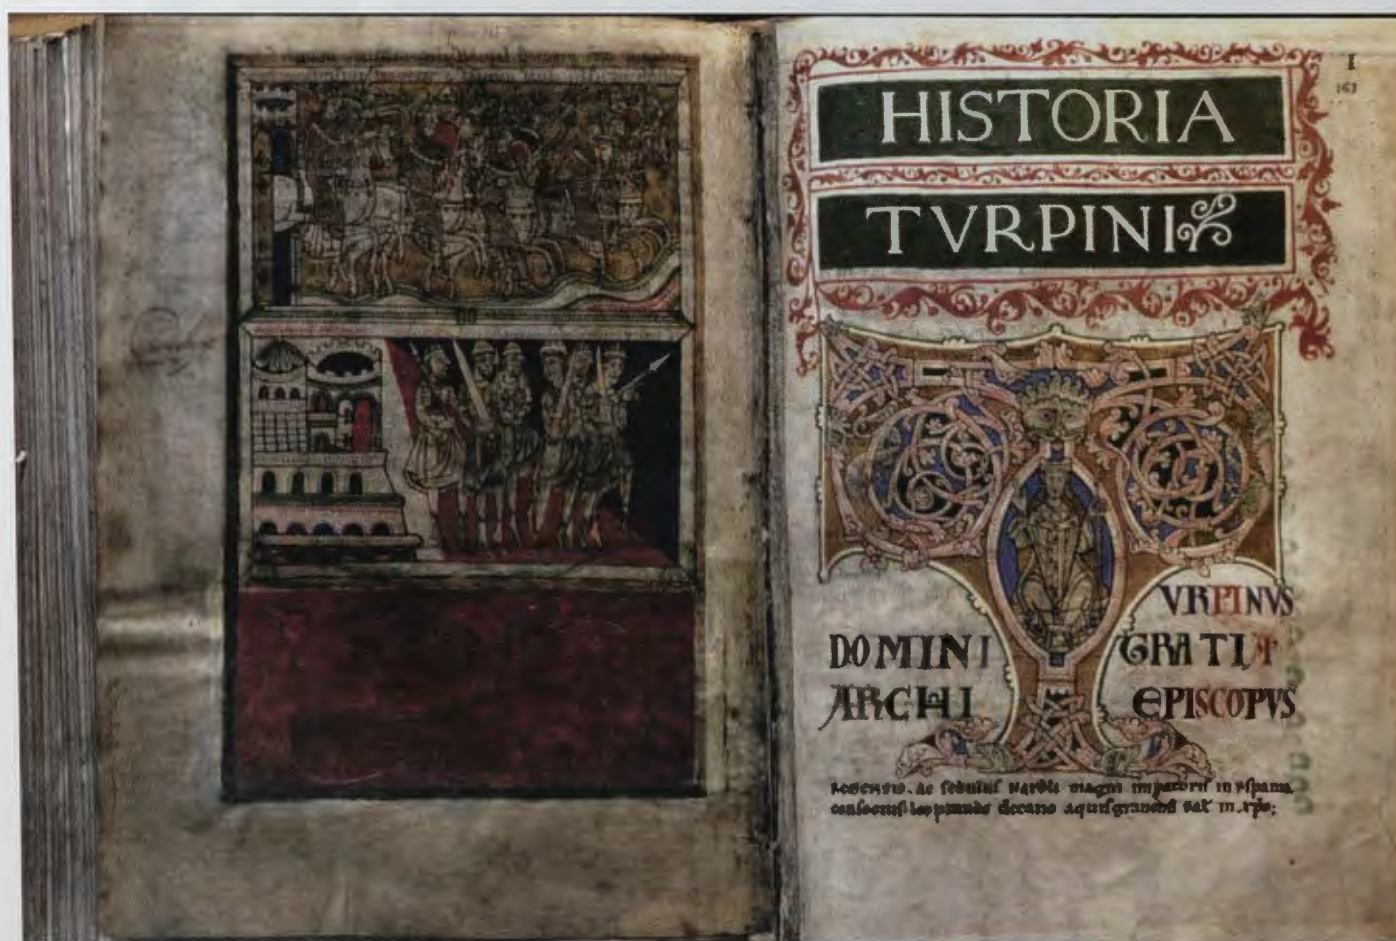 I
163
HISTORIA
TVRPINI
T
VRPINVS
DOMINI GRATIA
ARCHI EPISCOPVS
REMENSIS. Ac sedulus Karoli magni impatoris in yspania
consocius leoprando decano aquisgranensi sal in xpo;